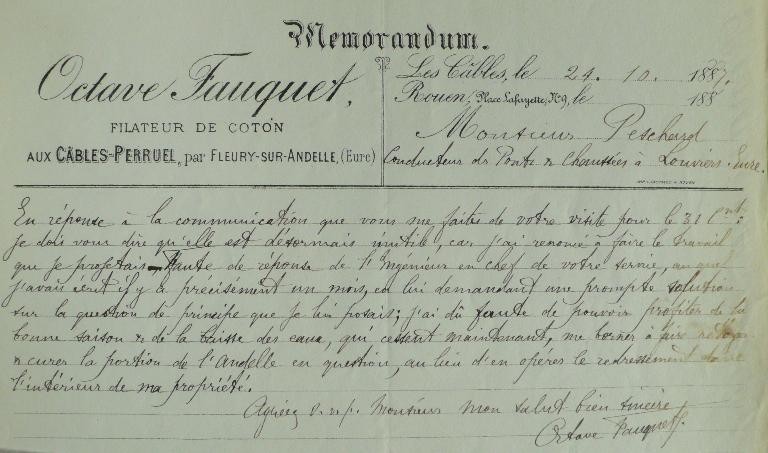 Memorandum.
Octave Fauquet,
FILATEUR DE COTON
AUX CÂBLES-PERRUEL, par FLEURY-SUR-ANDELLE, (Eure)
Les Câbles, le 24. 10. 1887.
Rouen, Place Lafayette, N°9, le 188
Monsieur Peschard
Conducteur ds Ponts & Chaussées à Louviers. Eure.
En réponse à la communication que vous me faites de votre visite pour le 31 Cnt:
je dois vous dire qu'elle est désormais inutile, car j'ai renoncé à faire le travail
que je projetais. Faute de réponse de l'Ingénieur en chef de votre service, auquel
j'avais écrit il y a précisement un mois, en lui demandant une prompte solution
sur la question de principe que je lui posais; j'ai dû faute de pouvoir profiter de la
bonne saison & de la baisse des eaux, qui cessent maintenant, me borner à faire nettoyer
& curer la portion de l'Andelle en question, au lieu d'en opérer le redressement dans
l'intérieur de ma propriété.
Agréez s. v. p. Monsieur mon salut bien sincère
Octave Fauquet.